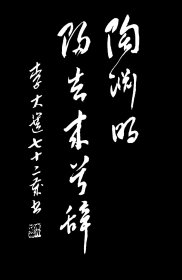 陶渊明
归去来兮辞
李大运七十二岁书